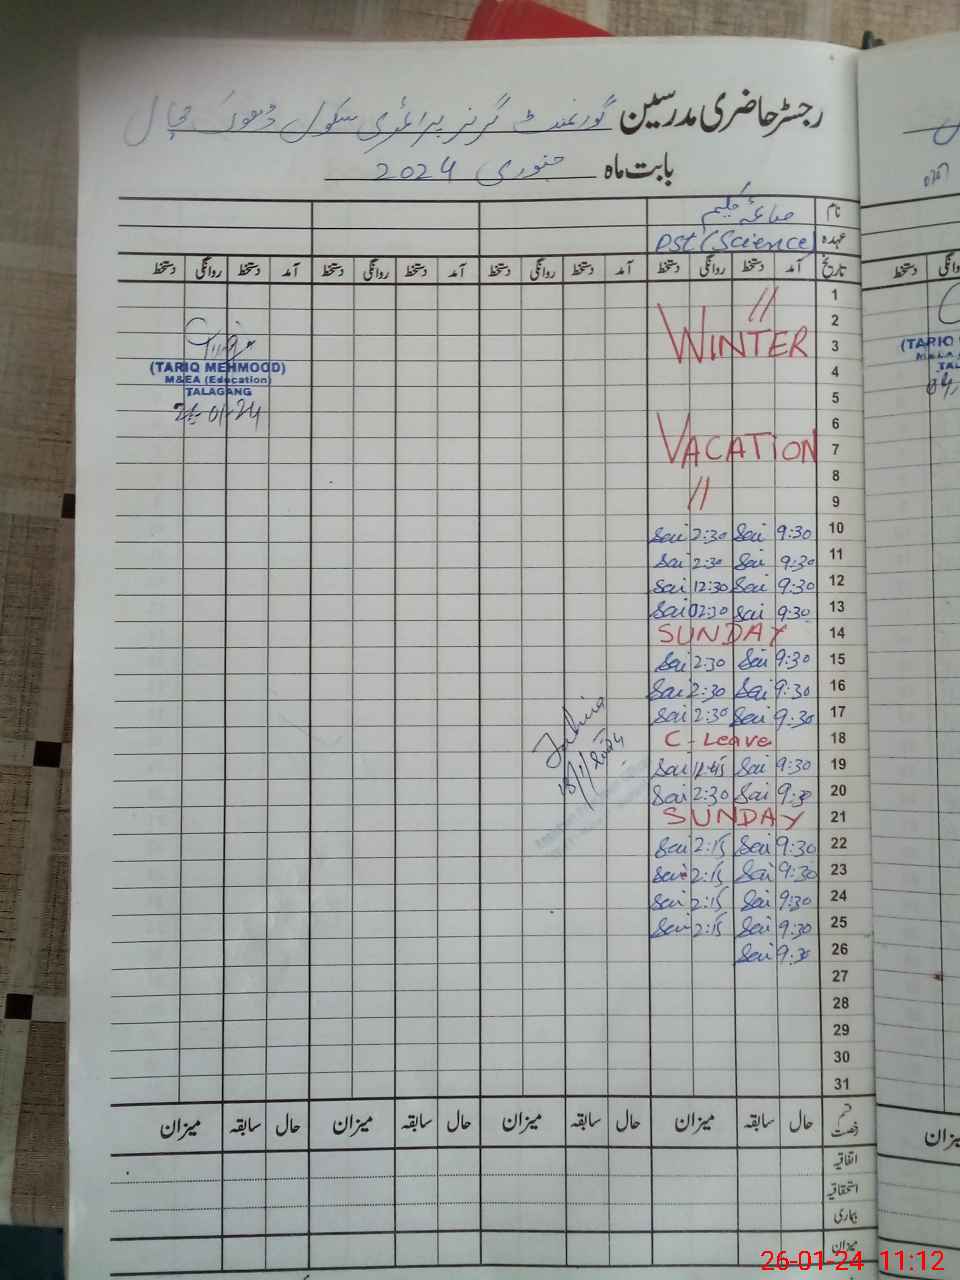 رجسٹر حاضری مدرسین گورنمنٹ گرلز پرائمری سکول ڈھوک
بابت ماہ جنوری 2024
نام صائمہ کلیم
عہدہ PST (Science)
تاریخ آمد دستخط روانگی دستخط آمد دستخط روانگی دستخط آمد دستخط روانگی دستخط آمد دستخط روانگی دستخط
1 //
2
3 WINTER
4
5
6
7 VACATION
8
9 //
10 9:30 Sai 2:30 Sai
11 9:30 Sai 2:30 Sai
12 9:30 Sai 12:30 Sai
13 9:30 Sai 02:30 Sai
14 SUNDAY
15 9:30 Sai 2:30 Sai
16 9:30 Sai 2:30 Sai
17 9:30 Sai 2:30 Sai
18 C-Leave
19 9:30 Sai Sai
20 9:30 Sai 2:30 Sai
21 SUNDAY
22 9:30 Sai 2:15 Sai
23 9:30 Sai 2:15 Sai
24 9:30 Sai 2:15 Sai
25 9:30 Sai 2:15 Sai
26 9:30 Sai
27
28
29
30
31
18/1/2024
(TARIQ MEHMOOD)
M&EA (Education)
TALAGANG
-01-24
قسم رخصت حال سابقہ میزان حال سابقہ میزان حال سابقہ میزان حال سابقہ میزان
اتفاقیہ
استحقاقیہ
بیماری
میزان
دستخط
(TARIQ
میزان
26-01-24 11:12